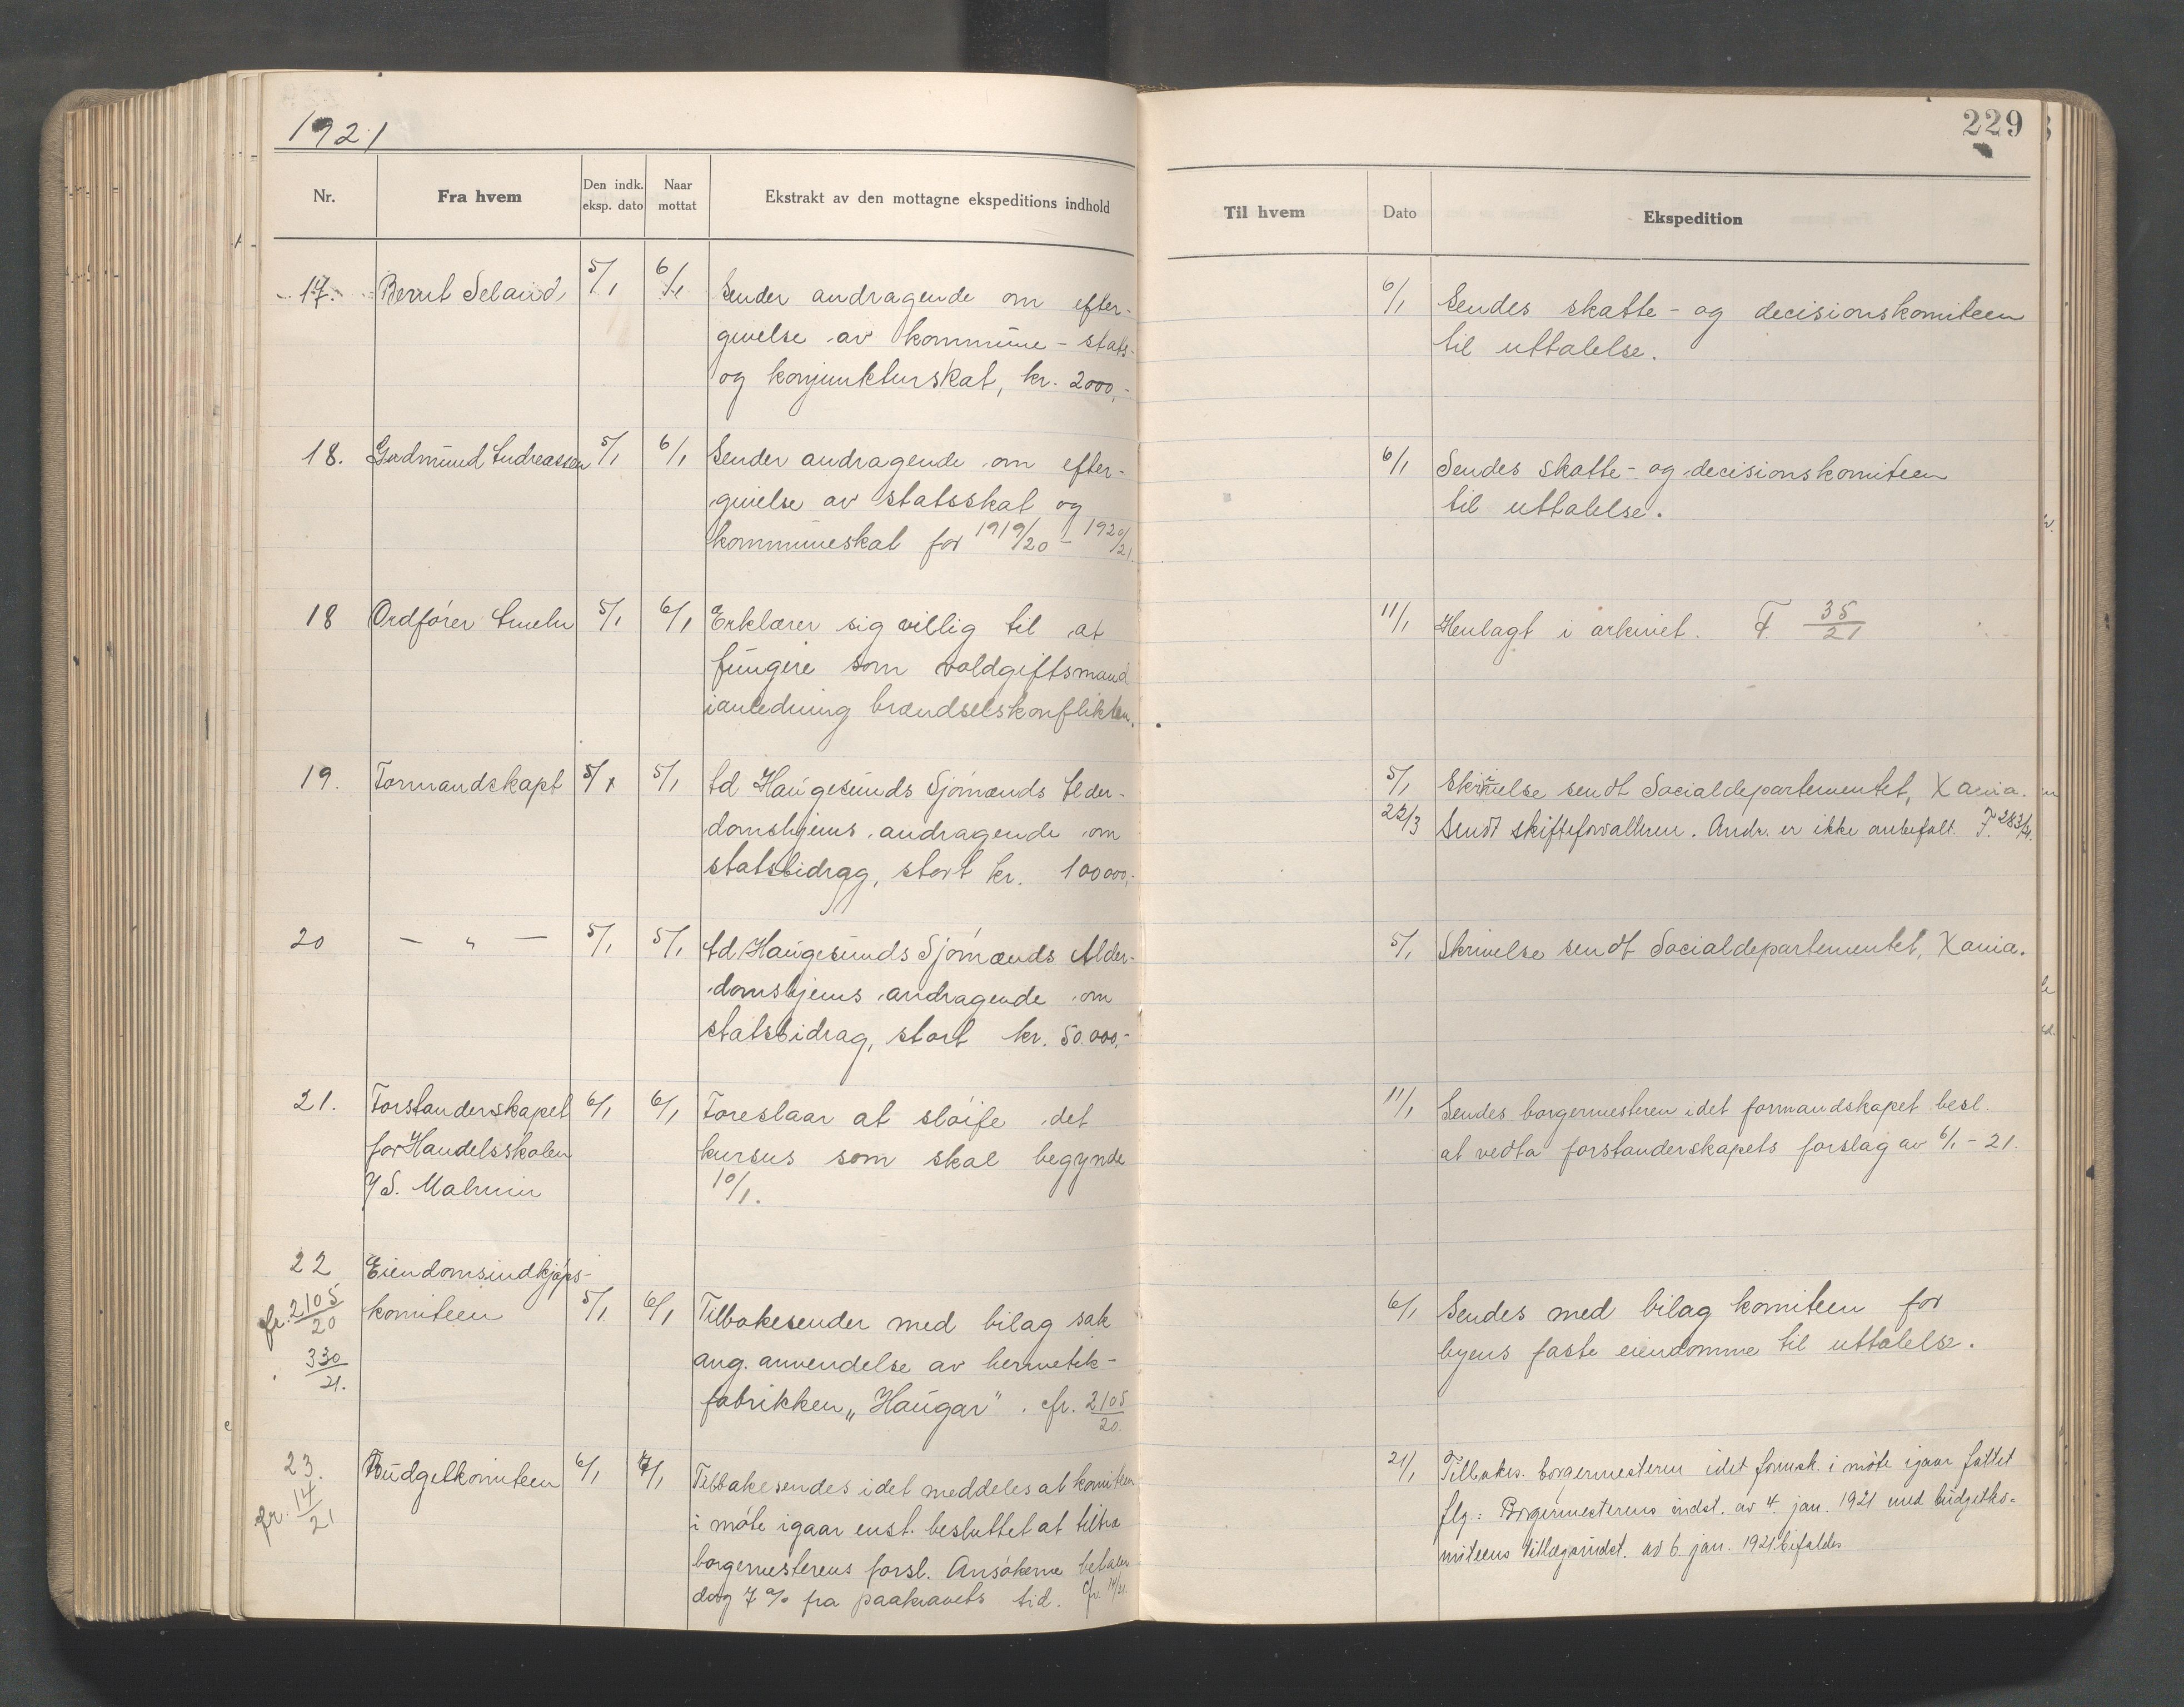 1921
229
Nr.
Fra hvem
Den indk. eksp. dato
Naar mottat
Ekstrakt av den mottagne ekspeditions indhold
Til hvem
Dato
Ekspedition
17. Bernt Seland 5/1 6/1 Sender andragende om efter-
givelse av kommune- stats-
og konjunkturskat, kr. 2000,-
6/1 Sendes skatte- og decisionskomiteen
til uttalelse.
18. Gudmund Andreassen 5/1 6/1 Sender andragende om efter-
givelse av statsskat og
kommuneskat for 1919/20 - 1920/21.
6/1 Sendes skatte- og decisionskomiteen
til uttalelse.
18 Ordfører 5/1 6/1 Erklærer sig villig til at
fungere som voldgiftsmand
i anledning brændselskonflikten.
11/1 Henlagt i arkivet. F. 35/21
19. Formandskapt 5/1 5/1 Ad Haugesunds Sjømænds Alder-
domshjems andragende om
statsbidrag, stort kr. 100000,-
5/1 Skrivelse sendt Socialdepartementet, Xania.
22/3 Sendt skifteforvalteren. Andr. er ikke anbefalt. F. 283/21.
20 — " — 5/1 5/1 Ad Haugesunds Sjømænds Alder-
domshjems andragende om
statsbidrag, stort kr. 50.000,-
5/1 Skrivelse sendt Socialdepartementet, Xania.
21. Forstanderskapet 6/1 6/1 Foreslaar at sløife det
for Handelsskolen kursus som skal begynde
v/ S. Malmin 10/1.
11/1 Sendes borgermesteren idet formandskapet besl.
at vedta forstanderskapets forslag av 6/1 - 21.
22 Eiendomsindkjøps-
fr. 2105/20 komiteen 5/1 6/1 Tilbakesender med bilag sak
330/21. ang. anvendelse av hermetik-
fabrikken „Haugar". cfr. 2105/20.
6/1 Sendes med bilag komiteen for
byens faste eiendomme til uttalelse.
23. Budgetkomiteen 6/1 7/1 Tilbakesendes idet meddeles at komiteen
fr. 14/21 i møte igaar enst. besluttet at tiltræ
borgermesterens forsl. Ansøkerne betaler
dog 7 % fra paakravets tid. cfr. 14/21.
21/1 Tilbakes. borgermesteren idet formsk. i møte igaar fattet
flg.: Borgermesterens indst. av 4. jan. 1921 med budgetko-
miteens tillægsindst. av 6 jan. 1921 bifaldes